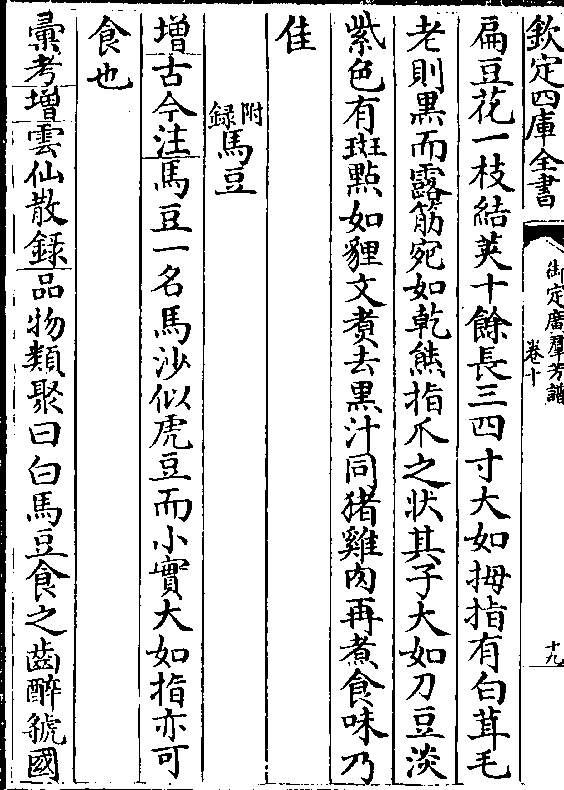 欽定四庫全書
御定廣羣芳譜
卷十
十九
扁豆花一枝結莢十餘長三四寸大如拇指有白茸毛
老則黒而露筋宛如乾熊指爪之状其子大如刀豆淡
紫色有斑點如貍文煑去黒汁同猪雞肉再煮食味乃
佳
附録馬豆
增古今注馬豆一名馬沙似虎豆而小實大如指亦可
食也
彚考增雲仙散録品物類聚曰白馬豆食之齒醉虢國